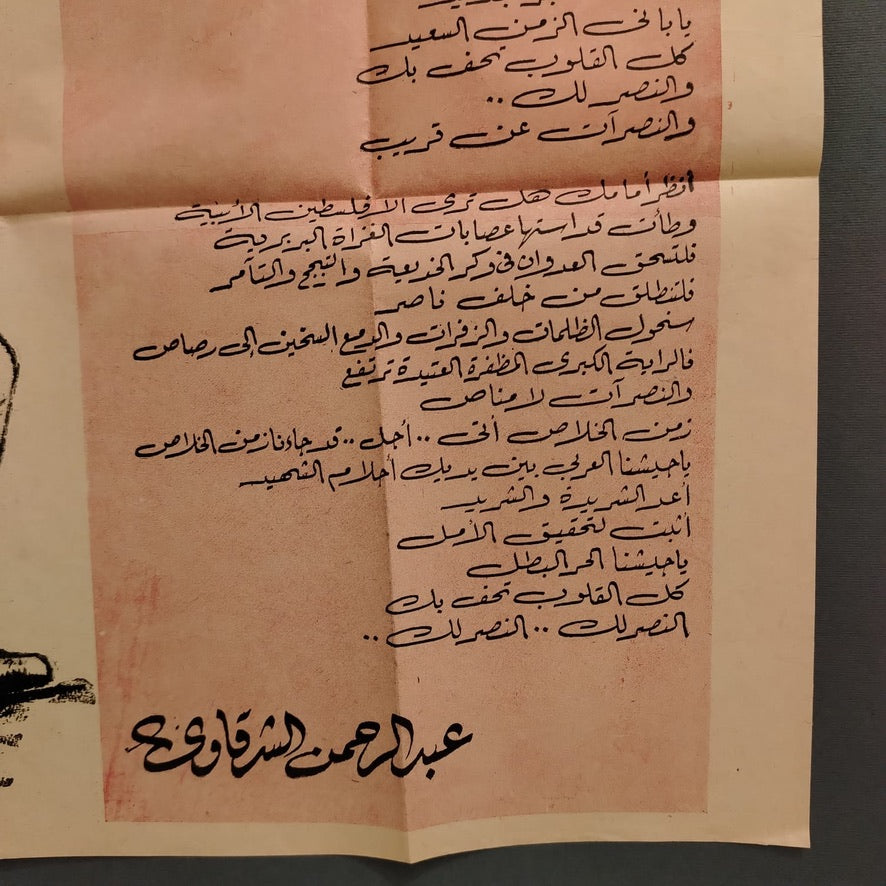 يا بانى الزمن السعيد
كل القلوب تحف بك
والنصر لك ..
والنصر آت عن قريب
انظر أمامك هل ترى الا فلسطين الأبية
وطأت قداستها عصابات الغزاة البربرية
فلتسحق العدوان فى وكر الخديعة والتبجح والتآمر
فلتنطلق من خلف ناصر
سنحول الظلمات والزفرات والدمع السخين إلى رصاص
فالراية الكبرى المظفرة العتيدة ترتفع
والنصر آت لا مناص
زمن الخلاص أتى .. أجل .. قد جاءنا زمن الخلاص
يا جيشنا العربي بين يديك أحلام الشهيد
أعد الشريدة والشريد
أثبت لتحقيق الأمل
يا جيشنا الحر البطل
كل القلوب تحف بك
النصر لك .. النصر لك ..
عبد الرحمن الشرقاوى